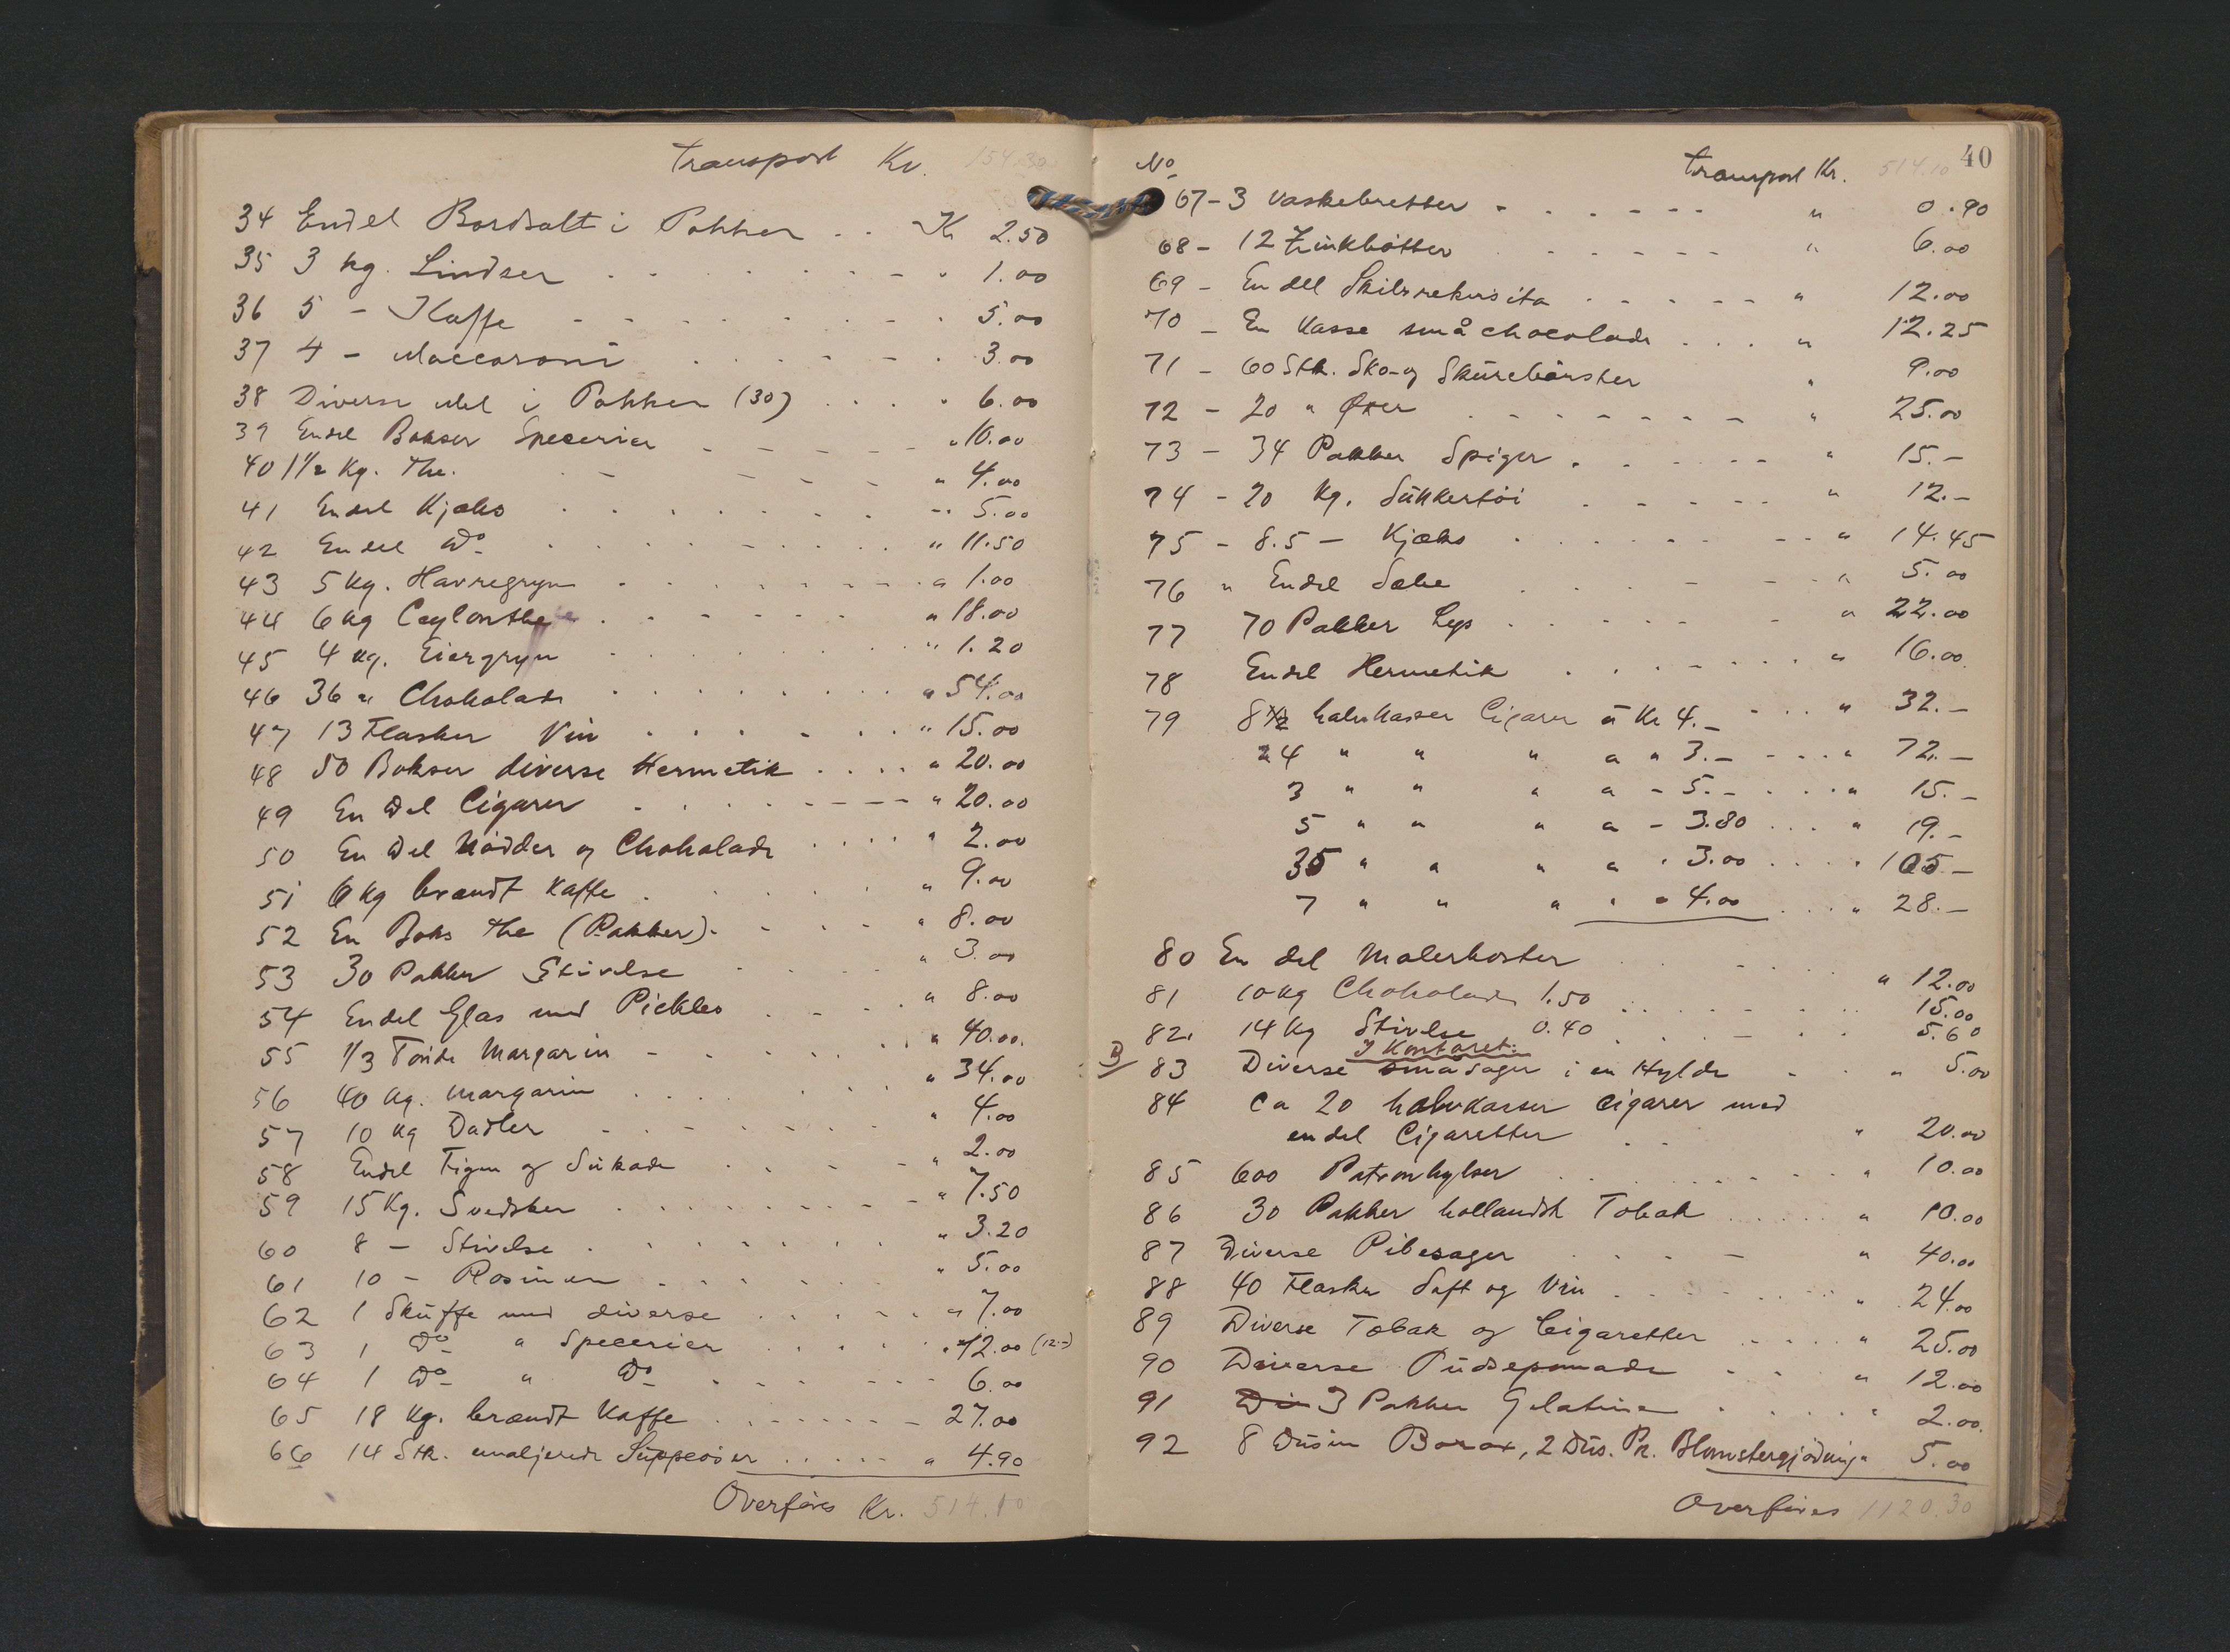 Transport Kr. 154.30
34 Endel Bordsalt i Pakker . . Kr 2.50
35 3 kg. Lindser . . . . . . . " 1.00
36 5 - Kaffe - - - - - - - . 5.00
37 4 - Maccaroni . . . . - - . 3.00
38 Diverse Mel i Pakker (30) . . . " 6.00
39 Endel Bokser Specerier - - - - - " 10.00
40 1 1/2 Kg. The. - - - - " 4.00
41 Endel Kjæks . . . . . . . . -" 5.00
42 En del Do . . . . . . . . " 11.50
43 5 Kg. Havregryn . . . . . . . " 1.00
44 6 kg Ceylonthe . . . . . . " 18.00
45 4 kg. Eiergryn . . . . . . . " 1.20
46 36 " Chokolade . . . . . . . " 54.00
47 13 Flasker Vin . . . . . . " 15.00
48 50 Bokser diverse Hermetik . . . . " 20.00
49 En Del Cigarer . . . . . - - - " 20.00
50 En Del Nødder og Chokolade . . . . " 2.00
51 6 kg brændt Kaffe . . . . . " 9.00
52 En Boks The (Pakker). - . . . " 8.00
53 30 Pakker Stivelse . . . . " 3.00
54 Endel Glas med Pickles . - - . " 8.00
55 1/3 Tønde Margarin - . . . . . " 40.00.
56 40 kg. Margarin . . . . . . " 34.00
57 10 kg Dadler - - - - - - " 4.00
58 Endel Figen og Sukade . . . - " 2.00
59 15 Kg. Svedsker . . . . . . . - " 7.50
60 8 - Stivelse . . . . . . . " 3.20
61 10 - Rosiner . . . . . . " 5.00
62 1 Skuffe med diverse . . . . . " 7.00
63 1 Do " Specerier . . . . . " 12.00 (12.-)
64 1 Do " Do . - - - - - 6.00
65 18 Kg. brændt Kaffe . . . . . . - 27.00
66 14 Stk. emaljerede Suppeøser . . . . . " 4.90
Overføres Kr. 514.10
No Transport Kr. 514.10 40
67 - 3 Vaskebretter - . . . - - - " 0.90
68 - 12 Zinkbøtter . - - - - - " 6.00
69 - En del Skilsrekvisita . - - - - " 12.00
70 - En Kasse små chocolade . . . " 12.25
71 - 60 Stk. Sko- og Skurebørster " 9.00
72 - 20 " Øxer . - - - - - - - " 25.00
73 - 34 Pakker Spiger . - - - - - " 15.-
74 - 20 kg. Sukkertøi . - - - - " 12.-
75 - 8.5 - Kjæks . . . . . . - - " 14.45
76 " Endel Sæbe . . . - - - " 5.00
77 70 Pakker Lys . . . . . - " 22.00
78 Endel Hermetik . . . - . . . " 16.00
79 8 1/2 halvkasser Cigarer á Kr 4.- - . . " 32.-
24 " " " a " 3.- - . . . " 72.-
3 " " " a - 5.- . . . . " 15.-
5 " " " a - 3.80 . . . " 19.-
35 " " " a " 3.00 . . . . " 105-
7 " " " " " 4.00 . . . " 28.-
80 En del Malerkoster . . - . . . . " 12.00
81 10 kg Chokolade 1.50 . . . . . . . . 15.00
82. 14 Kg Stivelse 0.40 . . . - . . . 5.60
I Kontoret:
B/ 83 Diverse småsager i en Hylde - . " 5.00
84 Ca 20 halvkasser cigarer med
endel Cigaretter . . . " 20.00
85 600 Patronhylser . . . . . . . . " 10.00
86 30 Pakker hollandsk Tobak . . . . . " 10.00
87 Diverse Pibesager . . . - " 40.00
88 40 Flasker Saft og Vin . . . . . . . " 24.00
89 Diverse Tobak og Cigaretter . . . . " 25.00
90 Diverse Pudsepomade . . . " 12.00
91 Div 3 Pakker Gelatine . . . . . " 2.00.
92 8 Dusin Borax, 2 Dus. Pk. Blomstergjødning " 5.00
Overføres 1120.30